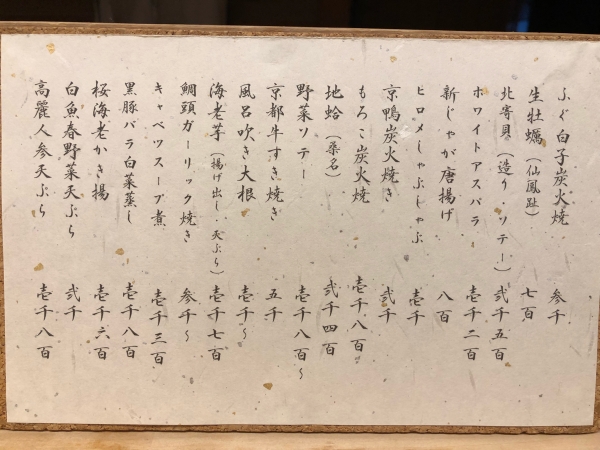 ふぐ白子炭火焼 参千
生牡蠣(仙鳳趾) 七百
北寄貝(造り・ソテー) 弐千五百
ホワイトアスパラ 壱千二百
新じゃが唐揚げ 八百
ヒロメしゃぶしゃぶ 壱千
京鴨炭火焼き 弐千
もろこ炭火焼 壱千八百〜
地蛤(桑名) 弐千四百
野菜ソテー 壱千八百〜
京都牛すき焼き 五千
風呂吹き大根 壱千〜
海老芋(揚げ出し・天ぷら) 壱千七百
鯛頭ガーリック焼き 参千〜
キャベツスープ煮 壱千三百
黒豚バラ白菜蒸し 壱千八百
桜海老かき揚 壱千六百
白魚春野菜天ぷら 弐千
高麗人参天ぷら 壱千八百